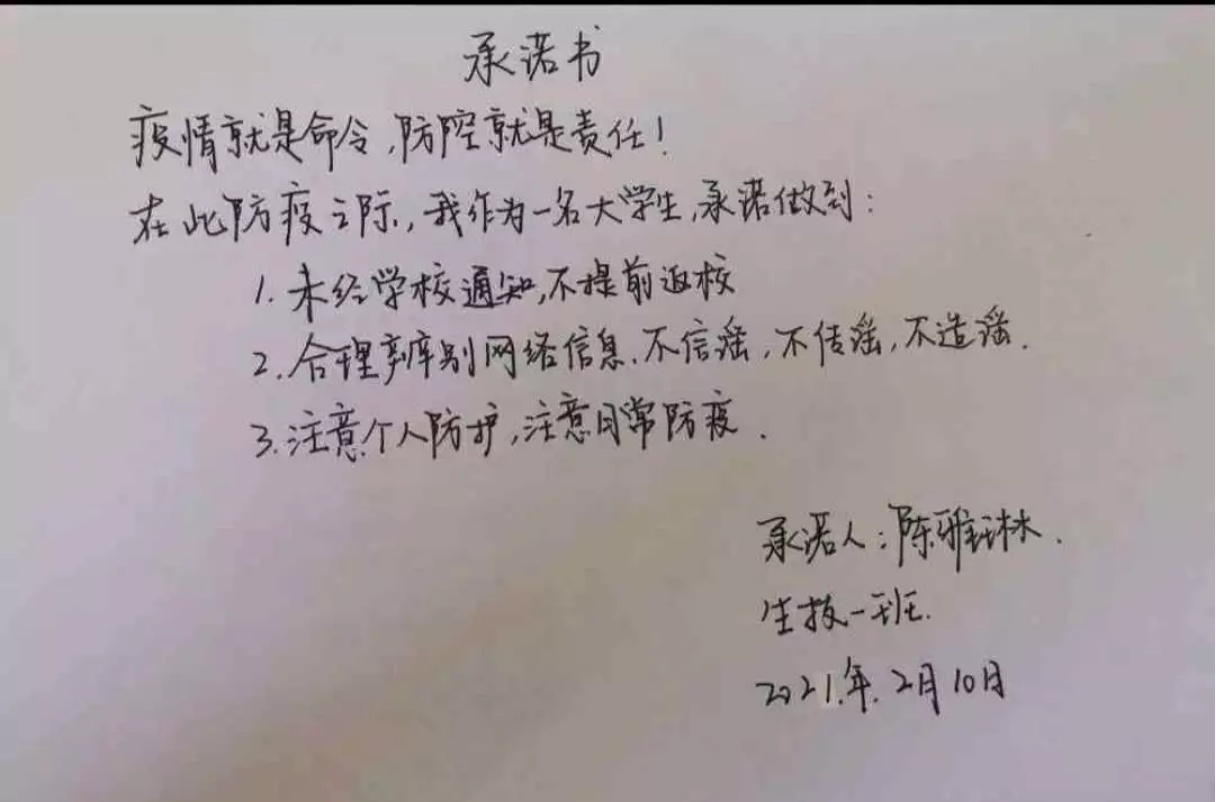 承诺书
疫情就是命令,防控就是责任!
在此防疫之际,我作为一名大学生,承诺做到:
1. 未经学校通知,不提前返校
2. 合理辨别网络信息.不信谣,不传谣,不造谣.
3. 注意个人防护,注意日常防疫.
承诺人:陈雅琳.
生技一班.
2021.年.2月10日